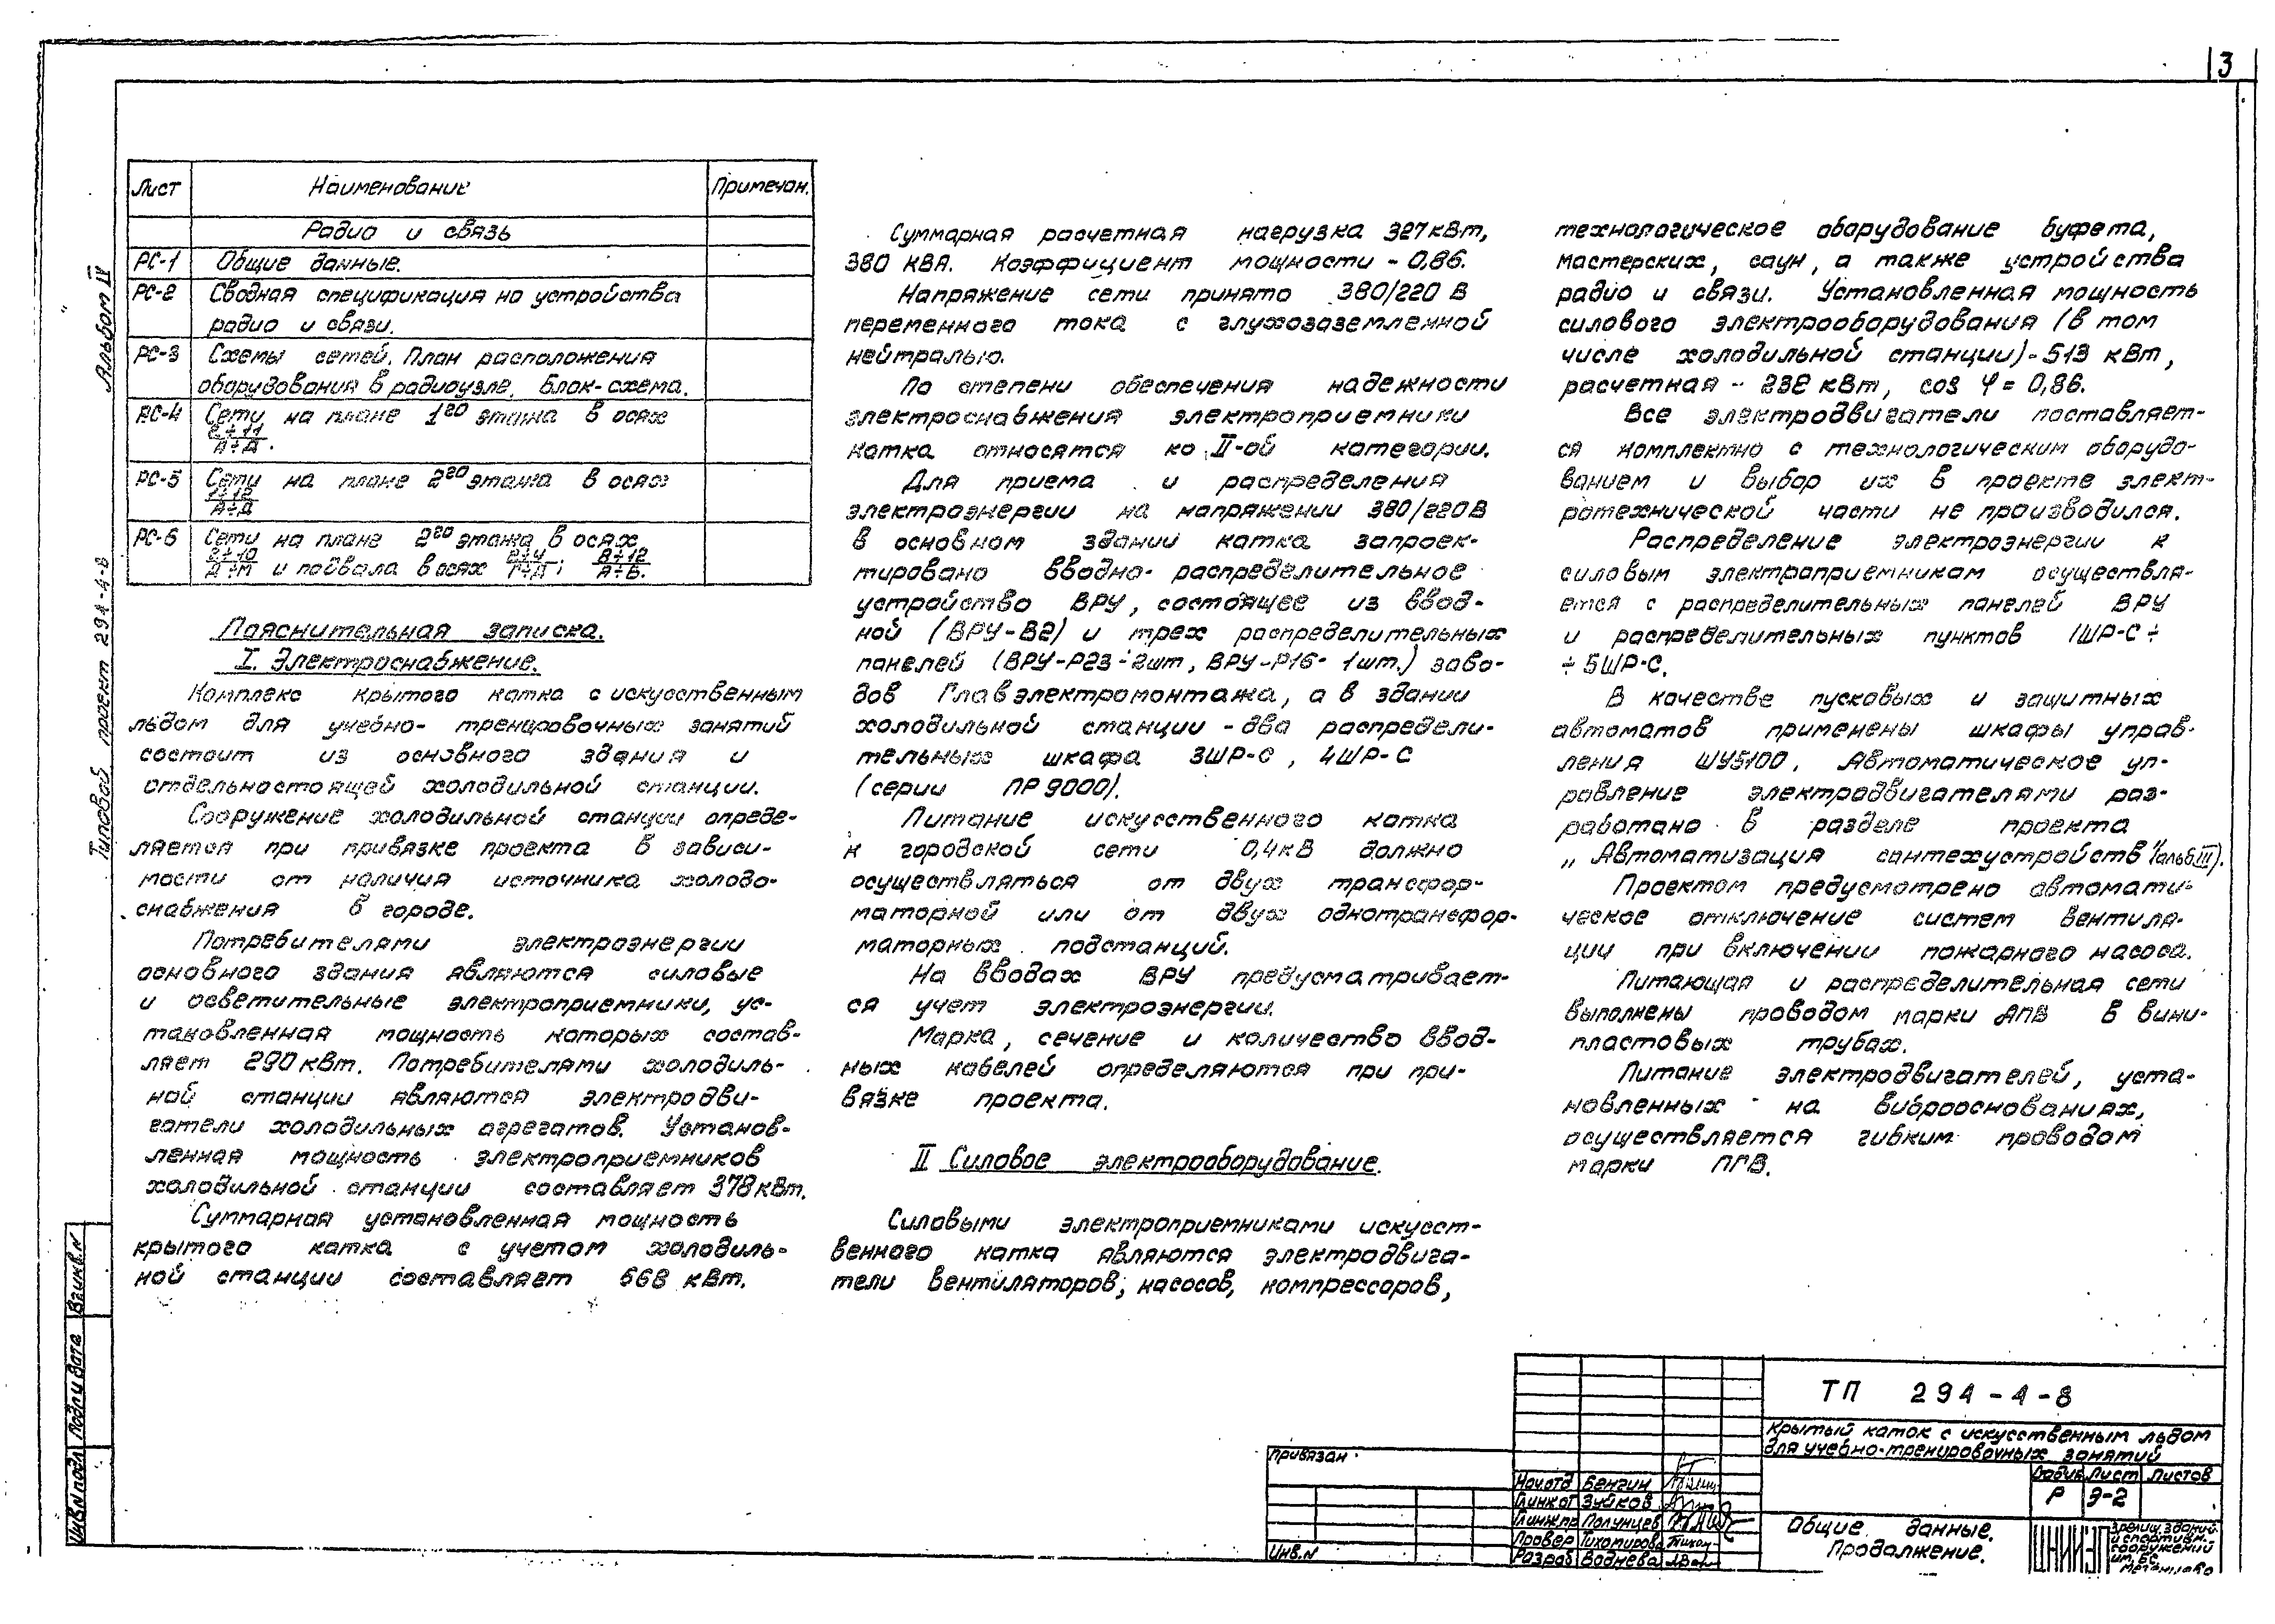 3
Альбом IV
Типовой проект 294-4-8
Лист Наименование Примечан.
Радио и связь
РС-1 Общие данные.
РС-2 Сводная спецификация на устройства
радио и связи.
РС-3 Схемы сетей. План расположения
оборудования в радиоузле. Блок-схема.
РС-4 Сети на плане 1го этажа в осях
2÷11
А÷Д.
РС-5 Сети на плане 2го этажа в осях
А÷Д
РС-6 Сети на плане 2го этажа в осях
2÷10 2÷4 8÷12
А÷И и подвала в осях Г÷Д; А÷Б.
Пояснительная записка.
I. Электроснабжение.
Комплекс крытого катка с искусственным
льдом для учебно-тренировочных занятий
состоит из основного здания и
отдельностоящей холодильной станции.
Сооружение холодильной станции опреде-
ляется при привязке проекта в зависи-
мости от наличия источника холодо-
снабжения в городе.
Потребителями электроэнергии
основного здания являются силовые
и осветительные электроприемники, ус-
тановленная мощность которых состав-
ляет 290 кВт. Потребителями холодиль-
ной станции являются электродви-
гатели холодильных агрегатов. Установ-
ленная мощность электроприемников
холодильной станции составляет 378 кВт.
Суммарная установленная мощность
крытого катка с учетом холодиль-
ной станции составляет 668 кВт.
Суммарная расчетная нагрузка 327 кВт,
380 КВА. Коэффициент мощности - 0,86.
Напряжение сети принято 380/220 В
переменного тока с глухозаземленной
нейтралью.
По степени обеспечения надежности
электроснабжения электроприемники
катка относятся ко II-ой категории.
Для приема и распределения
электроэнергии на напряжении 380/220В
в основном здании катка запроек-
тировано вводно-распределительное
устройство ВРУ, состоящее из ввод-
ной (ВРУ-В2) и трех распределительных
панелей (ВРУ-Р23-2шт, ВРУ-Р16-1шт.) заво-
дов Главэлектромонтажа, а в здании
холодильной станции - два распредели-
тельных шкафа 3ШР-С, 4ШР-С
(серии ПР 9000).
Питание искусственного катка
к городской сети 0,4кВ должно
осуществляться от двух трансфор-
маторной или от двух однотрансфор-
маторных подстанций.
На вводах ВРУ предусматривает-
ся учет электроэнергии.
Марка, сечение и количество ввод-
ных кабелей определяются при при-
вязке проекта.
II Силовое электрооборудование.
Силовыми электроприемниками искусст-
венного катка являются электродвига-
тели вентиляторов, насосов, компрессоров,
технологическое оборудование буфета,
мастерских, саун, а также устройства
радио и связи. Установленная мощность
силового электрооборудования (в том
числе холодильной станции) - 513 кВт,
расчетная - 232 кВт, cos φ = 0,86.
Все электродвигатели поставляет-
ся комплектно с технологическим оборудо-
ванием и выбор их в проекте элект-
ротехнической части не производился.
Распределение электроэнергии к
силовым электроприемникам осуществля-
ется с распределительных панелей ВРУ
и распределительных пунктов 1ШР-С÷
÷5ШР-С.
В качестве пусковых и защитных
автоматов применены шкафы управ-
ления ШУ5100. Автоматическое уп-
равление электродвигателями раз-
работано в разделе проекта
„Автоматизация сантехустройств" (альб.III).
Проектом предусмотрено автомати-
ческое отключение систем вентиля-
ции при включении пожарного насоса.
Питающая и распределительная сети
выполнены проводом марки АПВ в вини-
пластовых трубах.
Питание электродвигателей, уста-
новленных на виброоснованиях,
осуществляется гибким проводом
марки ПГВ.
Взг.инв.N
Подпись и дата
Инв.N подл.
Привязан
Инв.N
Нач.отд Бенгин
Гл.инж.от Зуйков
Гл.инж.пр Полунцев
Провер Тихомирова
Разраб Воднева
ТП 294-4-8
Крытый каток с искусственным льдом
для учебно-тренировочных занятий
Стадия Лист Листов
Р Э-2
Общие данные.
Продолжение.
ЦНИИЭП
зрелищ. зданий
и спортивн.
сооружений
им. Б.С.
Мезенцева